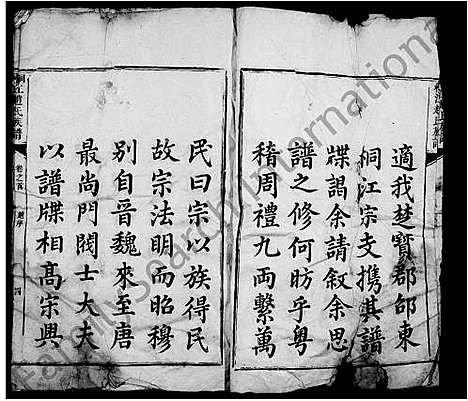 適我楚寶郡邵東
桐江宗支携其譜
牒謁余請敘余思
譜之修何昉乎粵
稽周禮九両繫萬
民曰宗以族得民
故宗法明而昭穆
别自晉魏來至唐
最尚門閥士大夫
以譜牒相高宗興
桐江趙氏族譜
卷之首
趙序
四
FamilySearch International